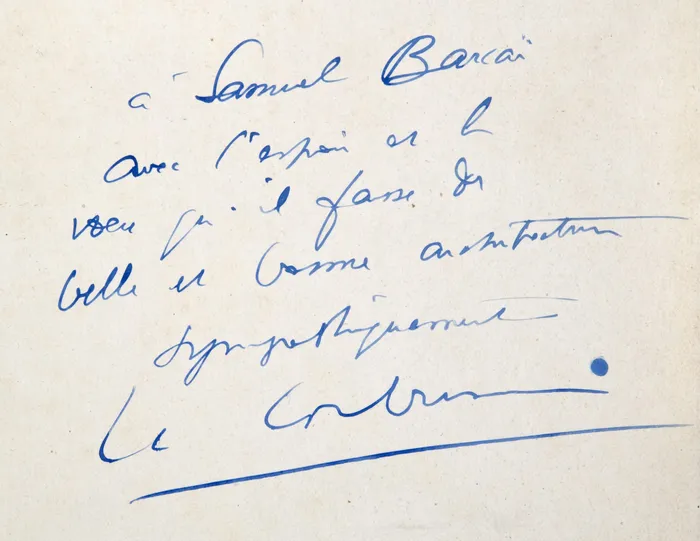 à Samuel Barcaï
avec l'espoir et le
voeu qu'il fasse de
belle et bonne architecture
sympathiquement
Le Corbusier